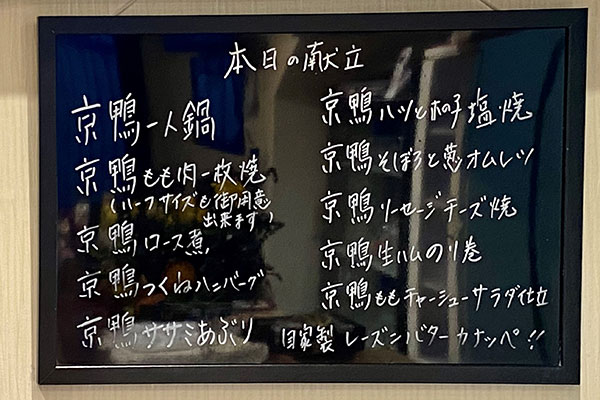 本日の献立
京鴨一人鍋
京鴨もも肉一枚焼
(ハーフサイズも御用意
出来ます)
京鴨ロース煮
京鴨つくねハンバーグ
京鴨ササミあぶり
京鴨ハツときの子塩焼
京鴨そぼろと葱オムレツ
京鴨ソーセージチーズ焼
京鴨生ハムのり巻
京鴨ももチャーシューサラダ仕立
自家製レーズンバターカナッペ!!